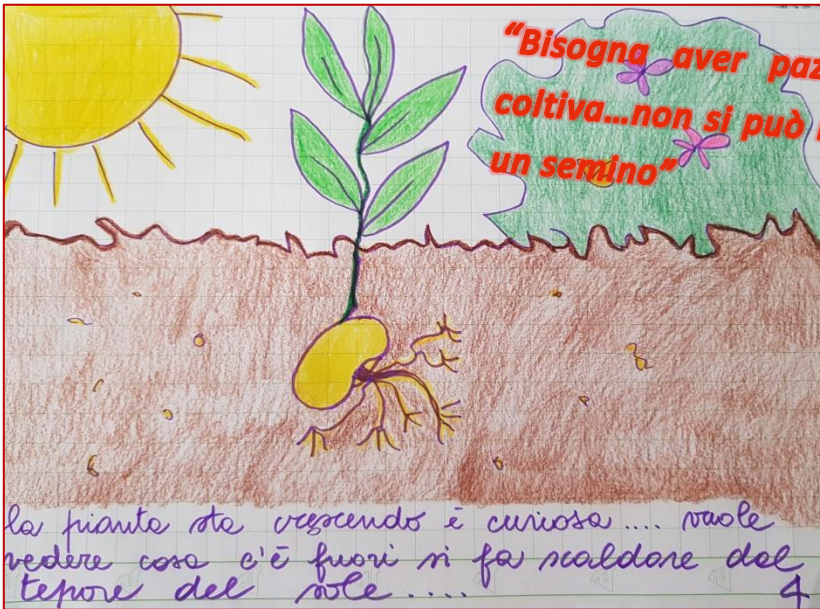 “Bisogna aver paz
coltiva...non si può
un semino”
la pianta sta crescendo è curiosa .... vuole
vedere cosa c'è fuori si fa scaldare dal
tepore del sole .....
4